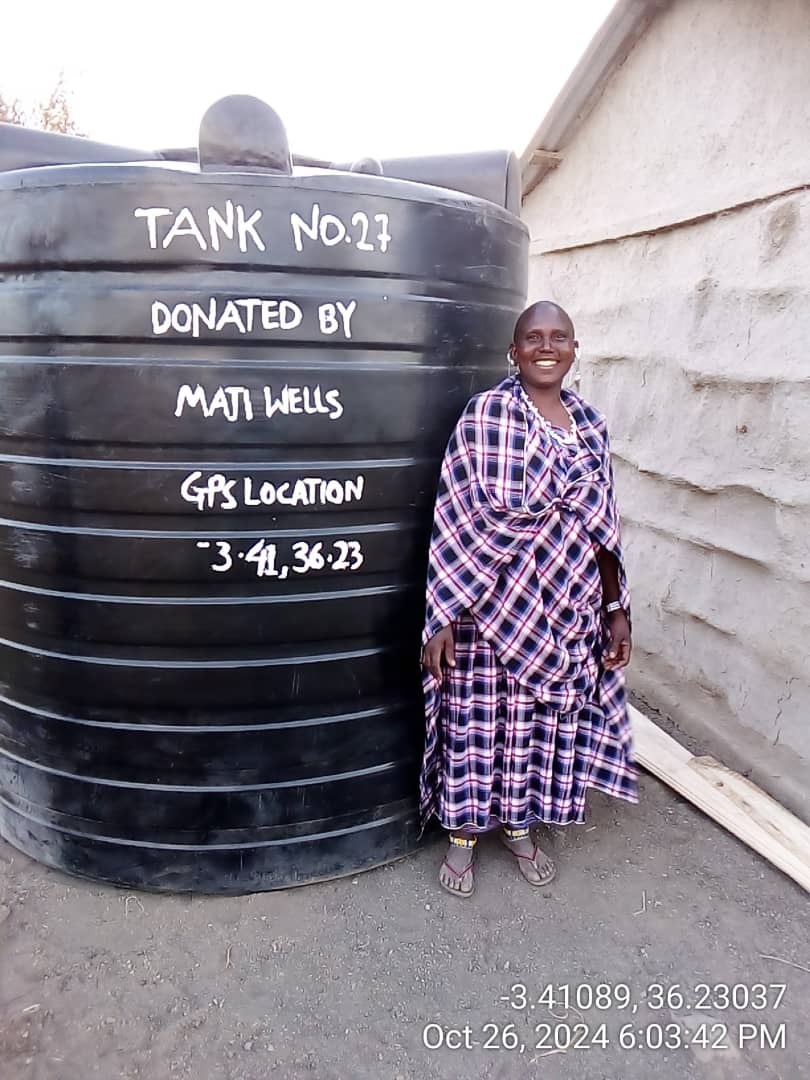 TANK NO.27
DONATED BY
MAJI WELLS
GPS LOCATION
-3.41,36.23
-3.41089, 36.23037
Oct 26, 2024 6:03:42 PM